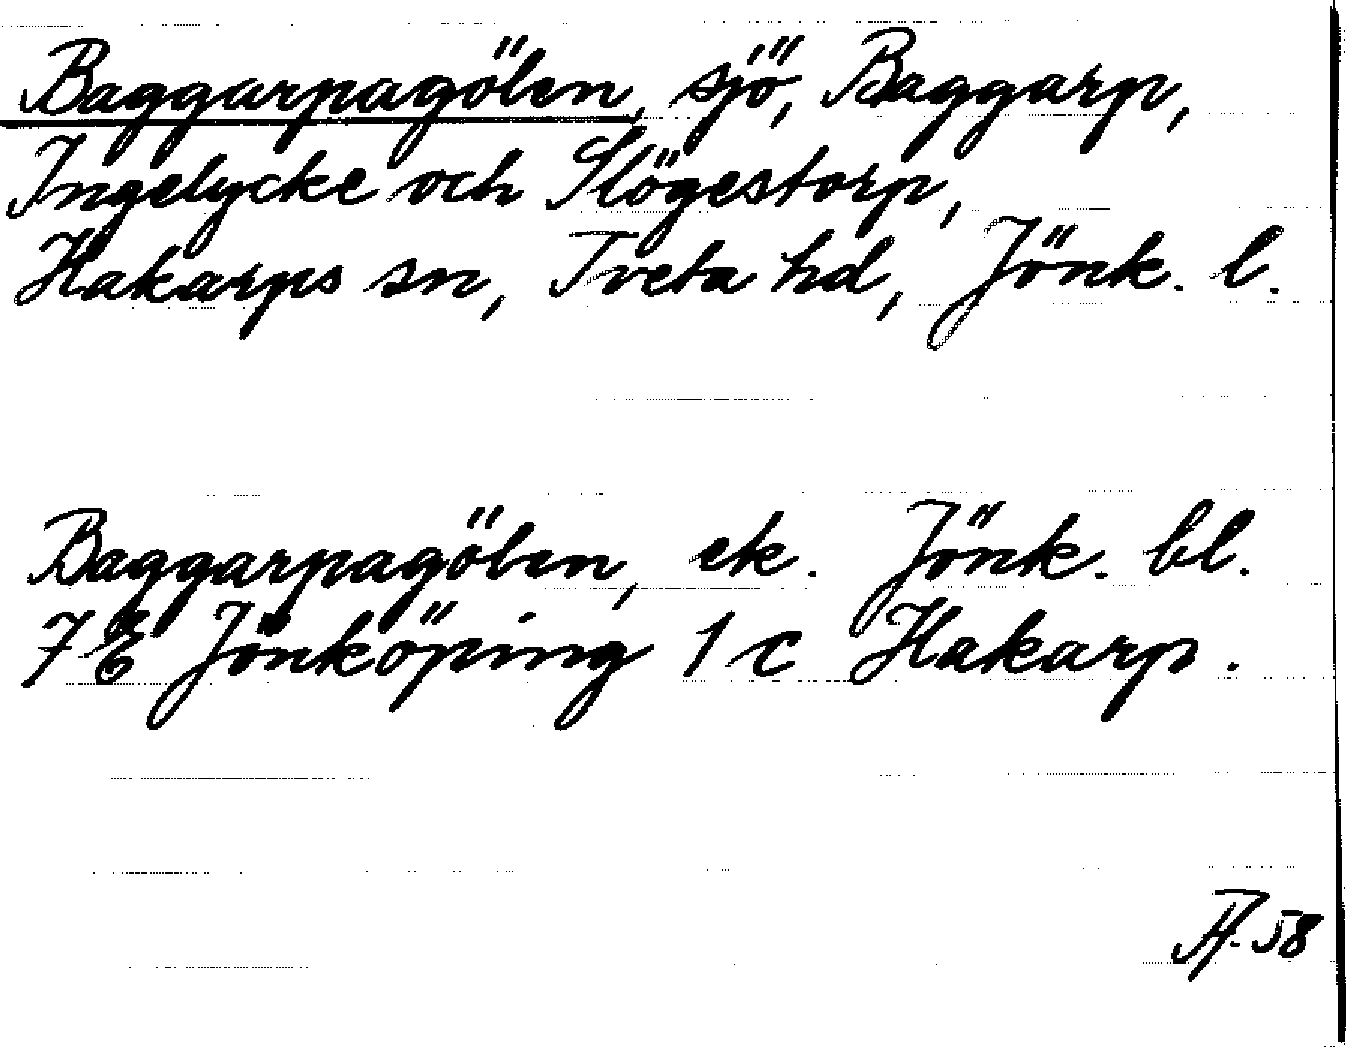 Baggarpagölen, sjö, Baggarp,
Ingelycke och Slögestorp,
Hakarps sn, Tveta hd, Jönk. l.
Baggarpagölen, ek. Jönk. bl.
7 E Jönköping 1 c Hakarp.
58